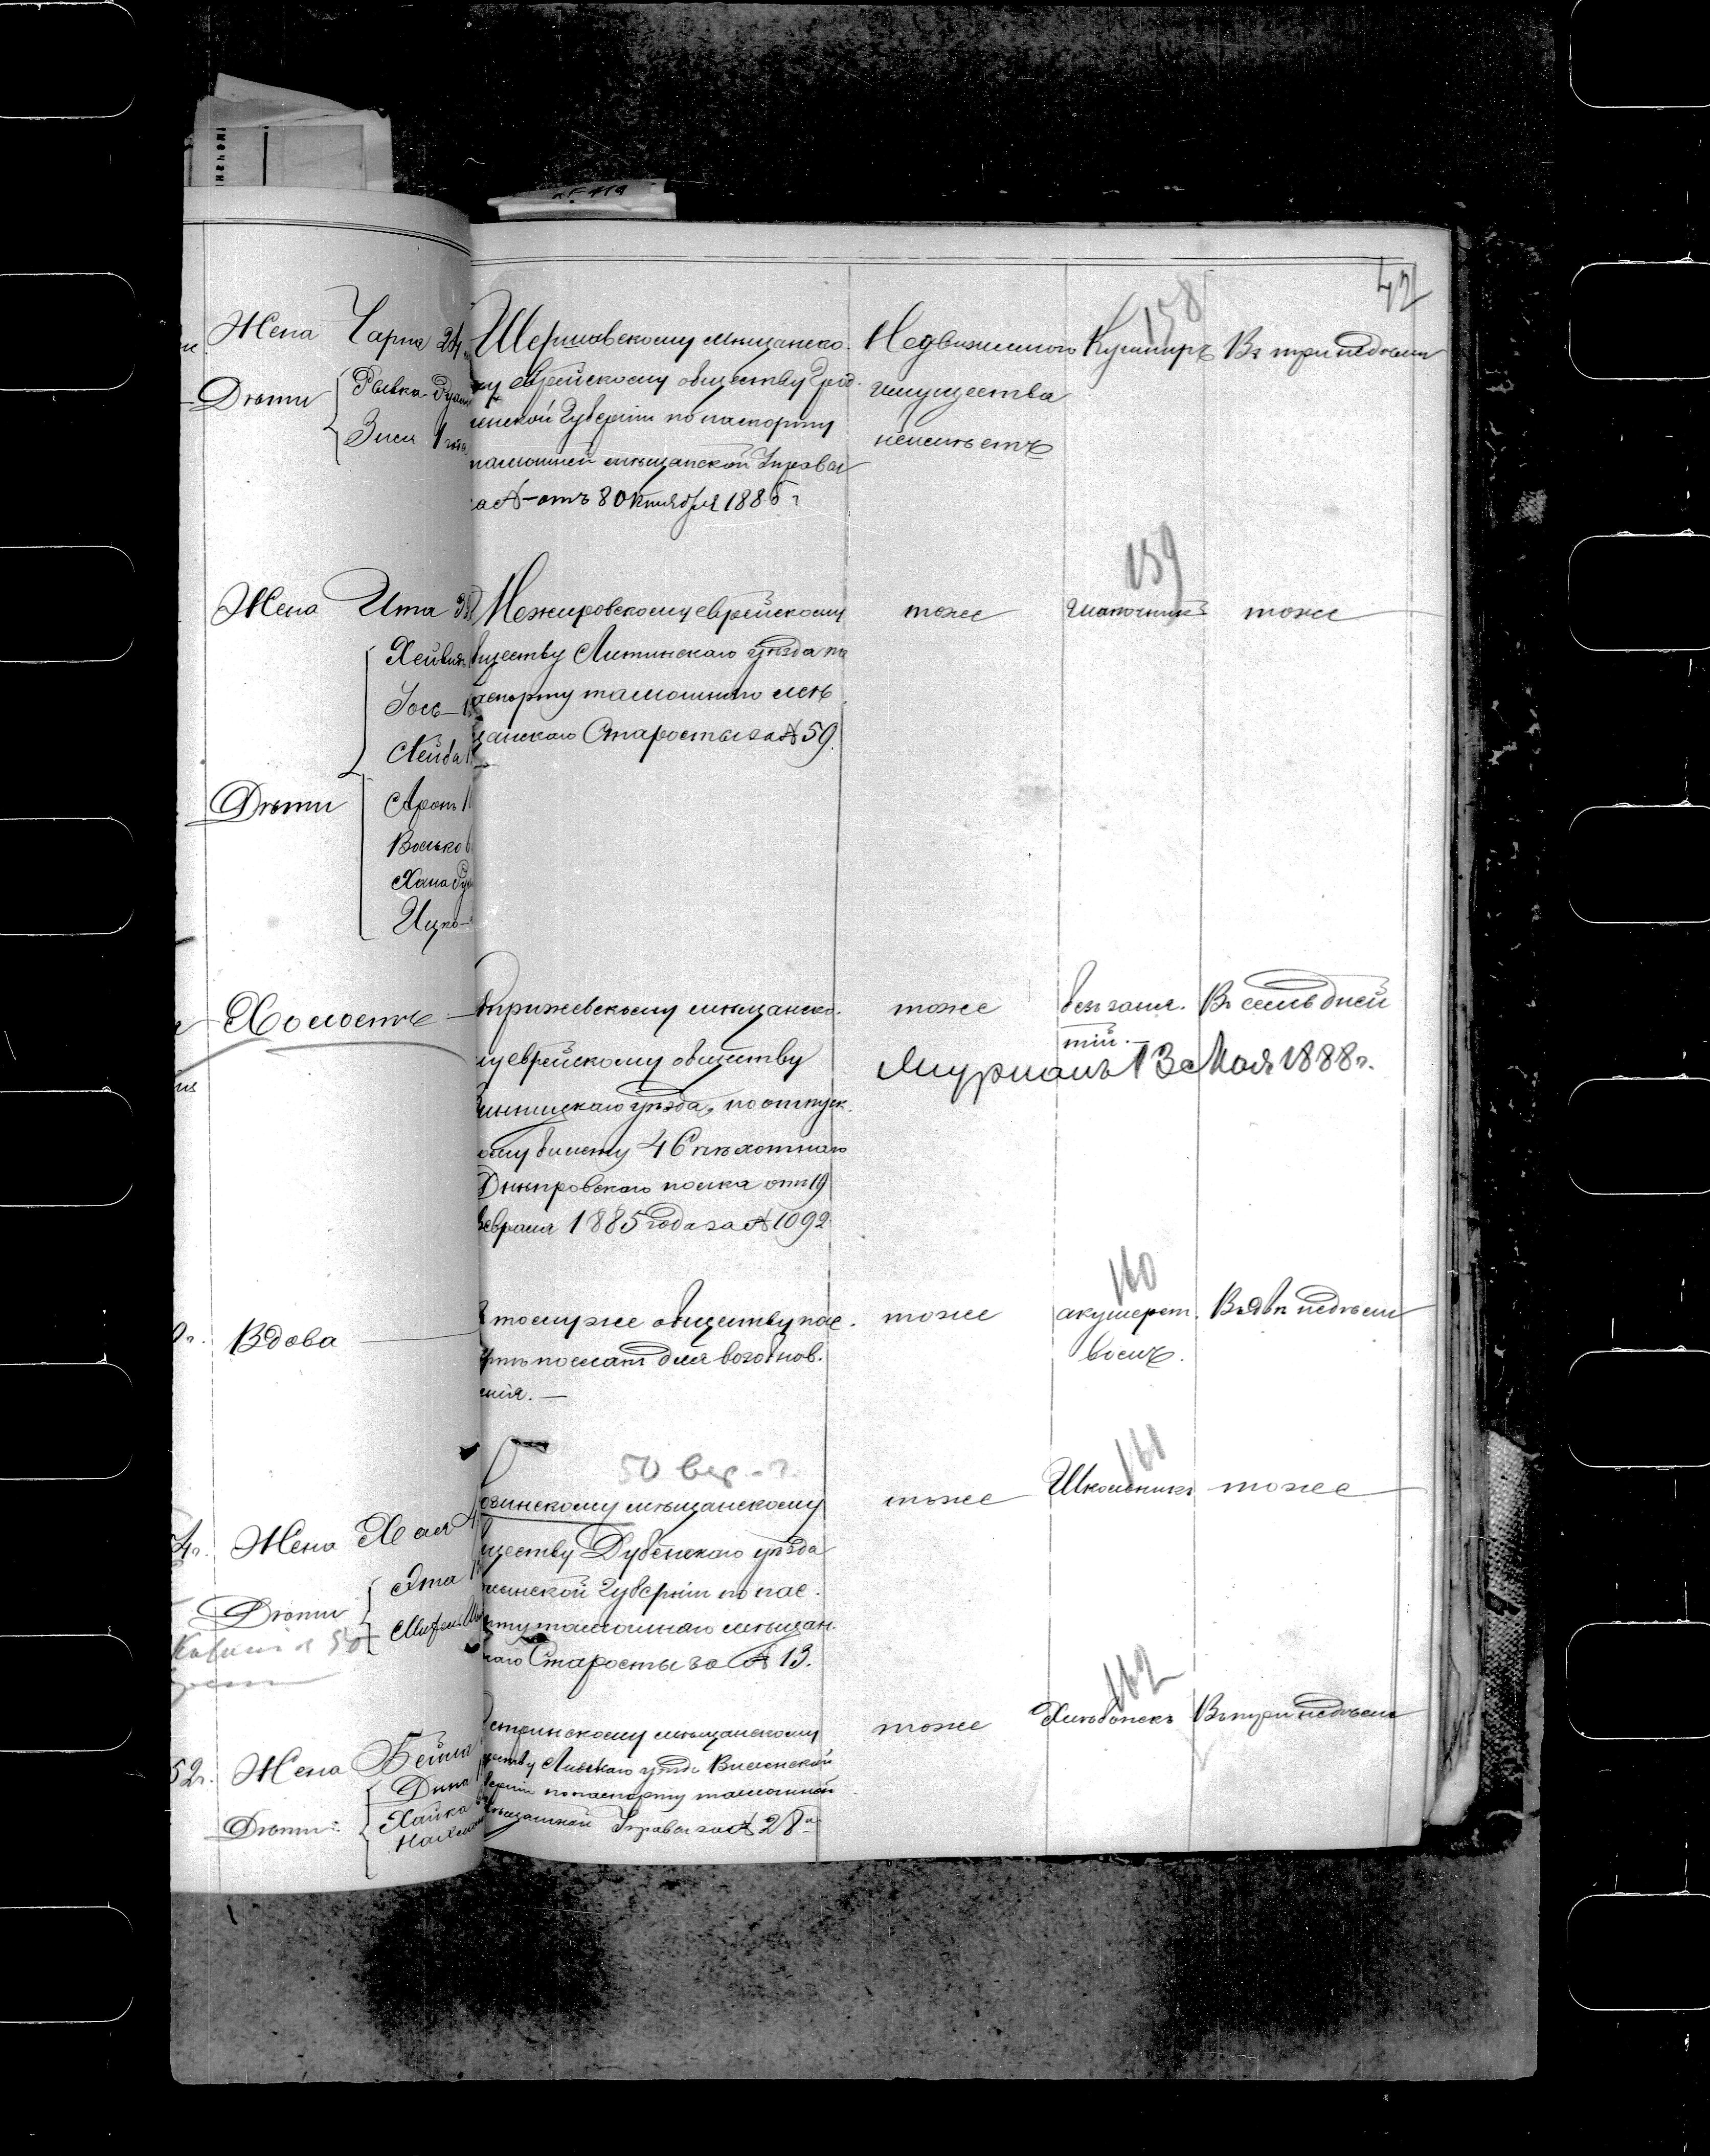 42
158
Жена Чарна 24
Дѣти
Рывка
Зися 1
Шершовскому мѣщанско-
му еврейскому обществу Грод-
ненской Губерніи по паспорту
тамошней мѣщанской Управы
за № – отъ 8 Октября 1885 г
Недвижимого
имущества
неимѣетъ
Кушниръ
Въ три недѣли
159
Жена Ита
Хейвия
Іось
Лейба
Дѣти
Аронъ
Волько
Хана
Ицко
Межировскому еврейскому
бществу Литинскаго уѣзда по
аспорту тамошняго мѣ
щанскаго Старосты за № 59.
тоже
шапочникъ
тоже
Холостъ
прижевскому мѣщанско-
му еврейскому обществу
инницкаго уѣзда, по отпуск-
ому билету 46 пѣхотнаго
Днѣпровскаго полка отъ 19
евраля 1885 года за № 1092
тоже
безъ заня-
тій.
Въ семь дней
13 Мая 1888 г.
160
Вдова
томуже обществу пас-
ртъ посланъ для возобнов-
енія. —
тоже
акушерст-
вомъ.
Въ двѣ недѣли
161
50 вер.
4 г. Жена Хая
Дѣти
Эта
озинскому мѣщанскому
ществу Дубенскаго уѣзда
лынской Губерніи по пас-
рту тамошнаго мѣщан-
скаго Старосты за № 13.
тоже
Школьникъ
тоже
162
52 г. Жена Бейла
Дѣти:
Дина
Хайка
стринскому мѣщанскому
ществу Лидскаго уѣзда Виленской
берніи по паспорту тамошней
мѣщанской Управы за № 28
тоже
Хлѣбопекъ
Въ три недѣли